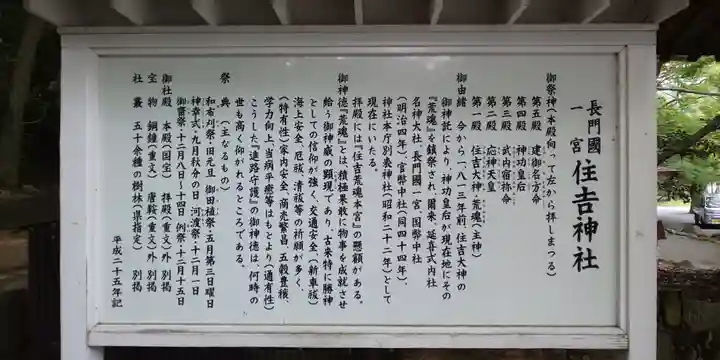 長門國
一宮 住吉神社
御祭神(本殿向って左から拝しまつる)
第五殿 建御名方命
第四殿 神功皇后
第三殿 武内宿祢命
第二殿 応神天皇
第一殿 住吉大神(荒魂)(主神)
御由緒 今から一、八一三年前、住吉大神の
御神託により、神功皇后が現在地にその
『荒魂』を鎮祭され、爾来、延喜式内社
名神大社、長門國一宮、国幣中社
(明治四年)官幣中社(同四十四年)、
神社本庁別表神社(昭和二十二年)として
現在にいたる。
拝殿には『住吉荒魂本宮』の懸額がある。
御神徳『荒魂』とは、積極果敢に物事を成就させ
給う御神威の顕現であり、古来特に勝神
としての信仰が強く、交通安全(新車祓)
海上安全、厄祓、清祓等の祈願が多く、
(特有性)家内安全、商売繁昌、五穀豊穣、
学力向上、当病平癒等はもとより(通有性)
こうした『進路守護』の御神徳は、何時の
世も高く仰がれるところである。
祭典(主なるもの)
和布刈祭・旧元旦 御田植祭・五月第三日曜日
神幸式・九月秋分の日 河渡祭・十二月一日
御斎祭・十二月八日〜十四日 例祭・十二月十五日
御社殿 本殿(国宝) 拝殿(重文)外 別掲
宝物 銅鐘(重文) 唐鞍(重文)外 別掲
社叢 五十余種の樹林(県指定) 別掲
平成二十五年記